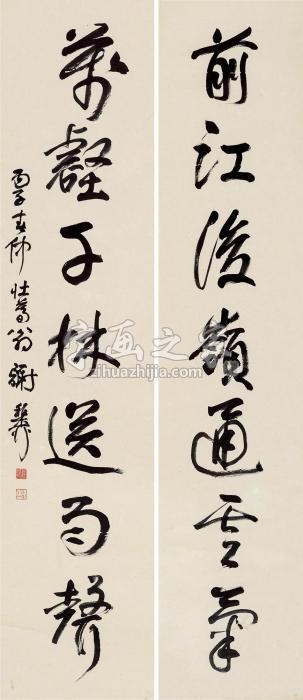 前江後嶺通雲氣
萬壑千林送雨聲
丙子春仲 壯暮翁謝稚柳
字画之家
zihuazhijia.com